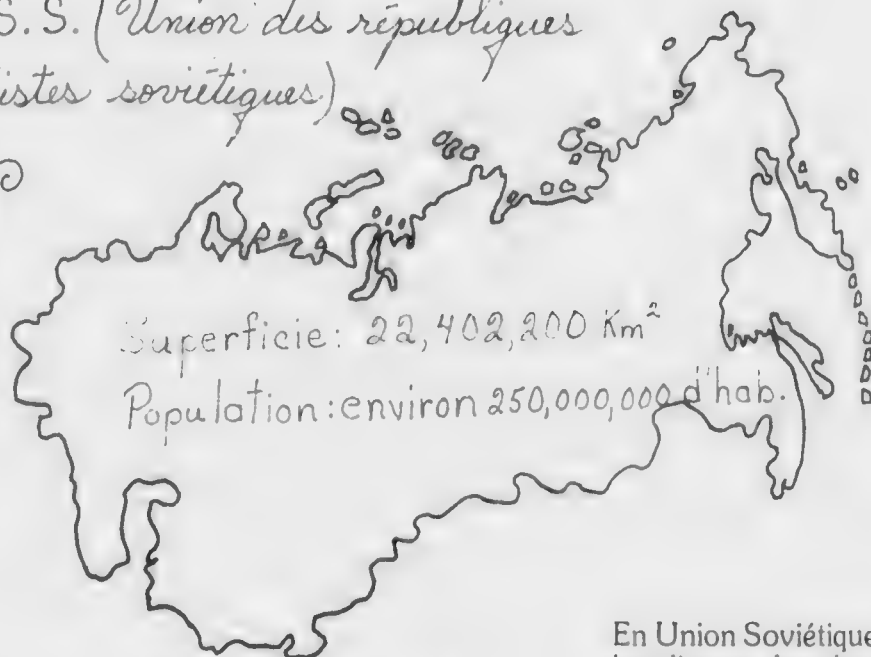 S.S. (Union des républiques
istes soviétiques)
Superficie: 22,402,200 Km²
Population: environ 250,000,000 d'hab.
En Union Soviétique